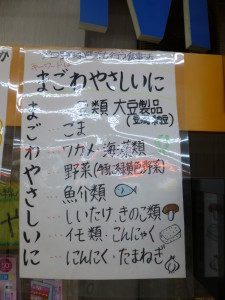 キーワードは
まごわやさしいに
ま…豆類 大豆製品
(豆腐・納豆)
ご…ごま
わ…ワカメ・海藻類
や…野菜(特に緑黄色野菜)
さ…魚介類
し…しいたけ、きのこ類
い…イモ類・こんにゃく
に…にんにく・たまねぎ